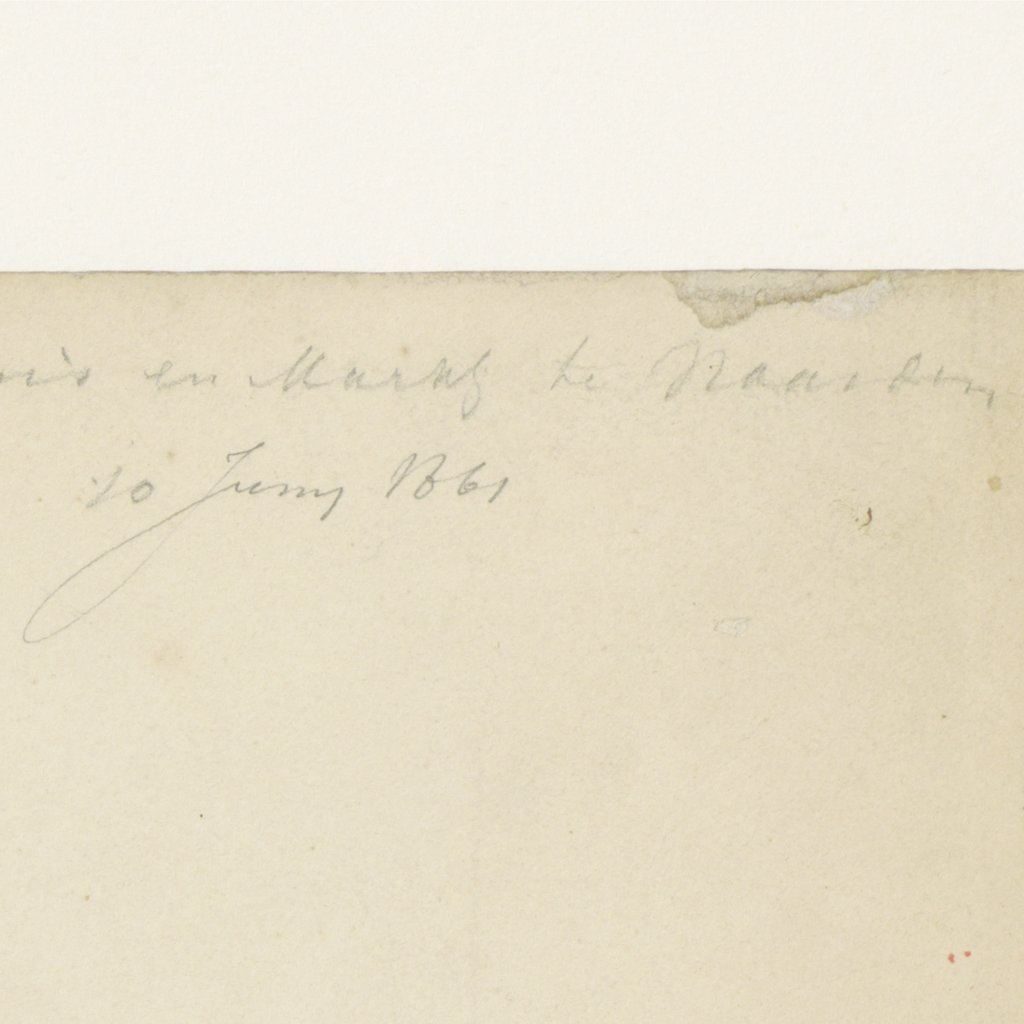 en Markt te Naarden,
10 Juny 1861